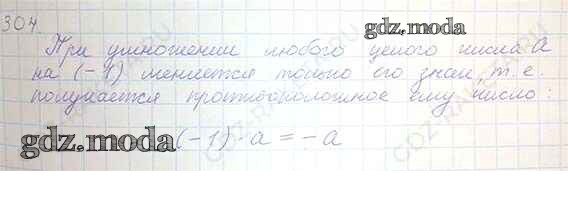 304.
gdz.moda
При умножении любого целого числа a
на (-1) меняется только его знак, т. е.
получается противоположное ему число:
gdz.moda (-1) · a = -a
GDZ-RAKETA.RU